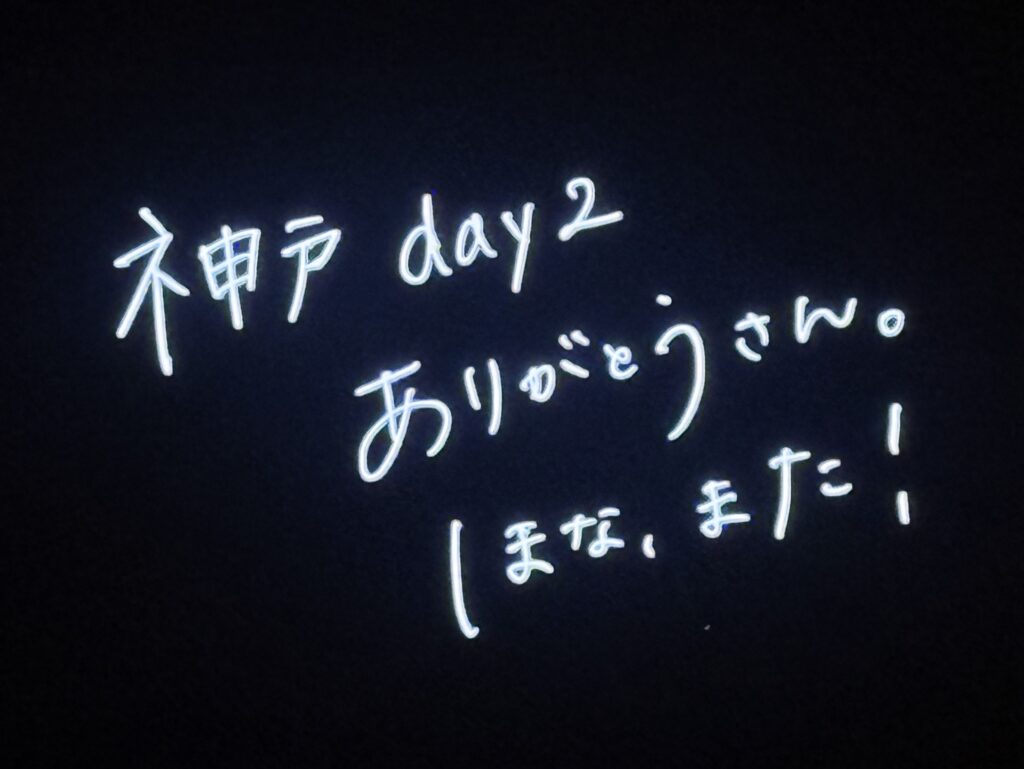 神戸 day2
ありがとうさん。
しまな、また!